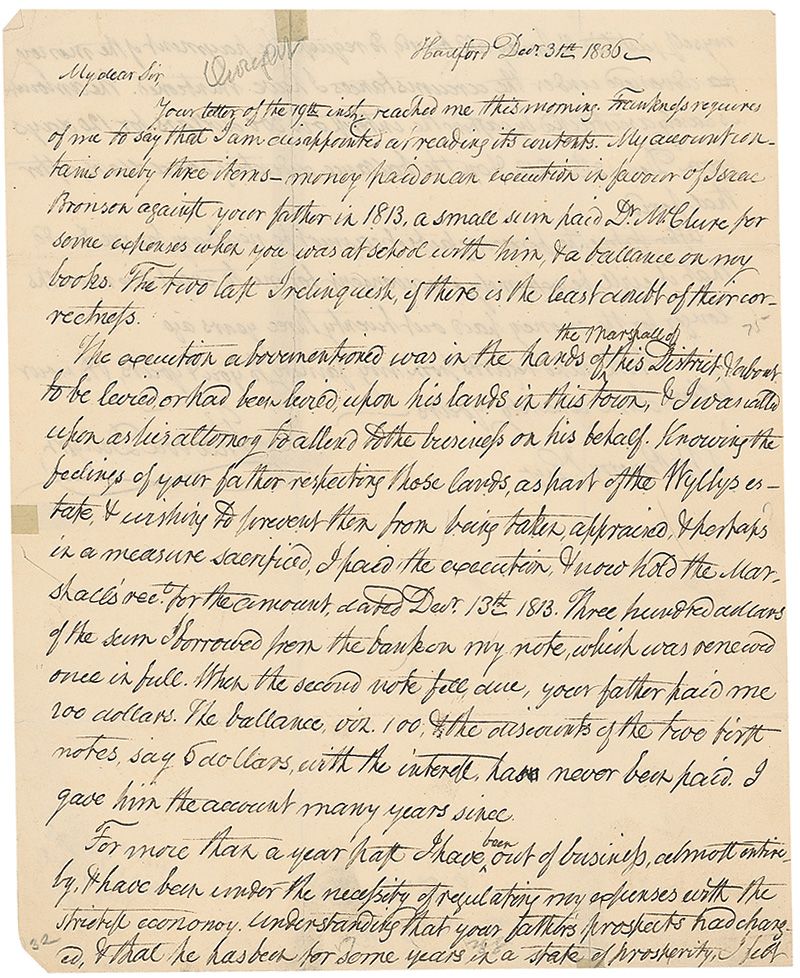 Hartford Decr. 31th 1836
My dear Sir
Your letter of the 19th inst. reached me this morning. Frankness requires
of me to say that I am disappointed at reading its contents. My account con-
tains only three items – money paid on an execution in favour of Isaac
Bronson against your father in 1813, a small sum paid Dr. McClure for
some expenses when you was at school with him, & a ballance on my
books. The two last I relinquish, if there is the least doubt of their cor-
rectness.
75
the Marshall of
The execution abovementioned was in the hands of this District, & about
to be levied, or had been levied, upon his lands in this town, & I was called
upon as his attorney to attend to the business on his behalf. Knowing the
feelings of your father respecting those lands, as part of the Wyllys es-
tate, & wishing to prevent them from being taken, appraised, & perhaps
in a measure sacrificed, I paid the execution, & now hold the Mar-
shall's rect. for the amount, dated Decr. 13th 1813. Three hundred dollars
of the sum I borrowed from the bank on my note, which was renewed
once in full. When the second note fell due, your father paid me
200 dollars. The ballance, viz. 100, & the discounts of the two first
notes, say 5 dollars, with the interest, has never been paid. I
gave him the account many years since.
been
For more than a year past I have out of business, almost entire-
ly, & have been under the necessity of regulating my expenses with the
strictest economy. Understanding that your father's prospects had chang-
ed, & that he has been for some years in a state of prosperity, I felt
32